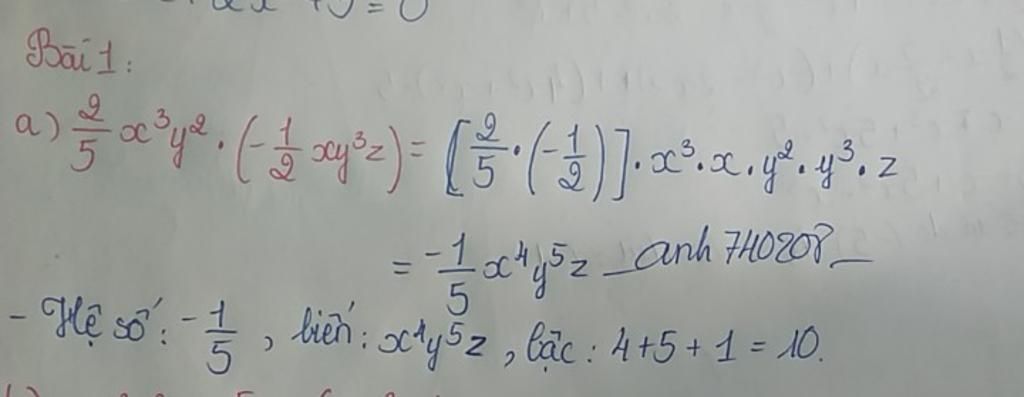 x + 5 = 0
Bài 1:
a) 2/5 x³y² · (-1/2 xy³z) = [2/5 · (-1/2)] · x³ · x · y² · y³ · z
= -1/5 x⁴y⁵z _anh740208_
- Hệ số: -1/5 , biến: x⁴y⁵z , bậc: 4+5+1 = 10.